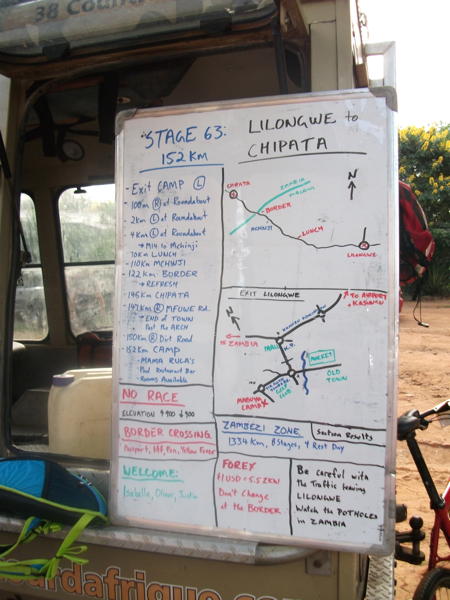 38 Count
STAGE 63:
152 KM
LILONGWE to
CHIPATA
- Exit CAMP (L)
- 100m (R) at Roundabout
- 2km (L) at Roundabout
- 4km (L) at Roundabout
→ M14 to Mchinji
- 70km LUNCH
- 110km MCHNJI
- 122 km: BORDER
→ REFRESH
- 145km CHIPATA
- 147km (R) MFUWE Rd.
→ END of TOWN
Past the ARCH
- 150km (R) Dirt Road
- 152km CAMP
- MAMA RULA'S
Pool Restaurant Bar
Rooms Available
CHIPATA
ZAMBIA
MALAWI
BORDER
MCHNJI
LUNCH
LILONGWE
N
EXIT LILONGWE
TO AIRPORT
+ KASUNGU
TO ZAMBIA
N
MARKET
OLD
TOWN
GOLF
CLUB
MABUYA
CAMP
NO RACE
ELEVATION ↑900 ↓900
BORDER CROSSING
Passport, Pen, Yellow Fever
WELCOME:
Isabelle, Oliver, Justin
ZAMBEZI ZONE
1334 Km, 8 Stages, 4 Rest Day
Section Results
FOREX
$1 USD = 5.5 ZKW
Don't Change
at the BORDER
Be careful with
the Traffic leaving
LILONGWE
Watch the POTHOLES
in ZAMBIA
ourdafrique.co